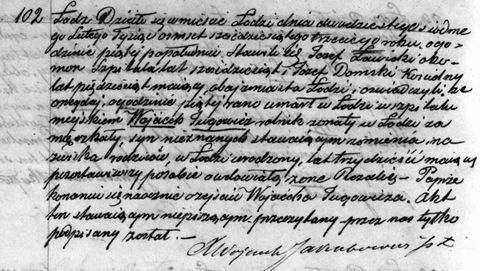 102 Łódź. Działo się w mieście Łodzi dnia dwudziestego siódme
go Lutego Tysiąc ośmset sześćdziesiątego trzeciego roku, o go
dzinie piątej popołudniu. Stawili się Józef Zawidzki eko
nom Szpitala lat sześćdziesiąt i Józef Domski Kościelny
lat pięćdziesiąt mający, obaj z miasta Łodzi, i oświadczyli, że
onegdaj, o godzinie piątej rano umarł w Łodzi w szpitalu
miejskim Wojciech Ługowicz rolnik żonaty w Łodzi za
mieszkały, syn nieznanych stawającym z imienia, na
zwiska rodziców, w Łodzi urodzony, lat trzydzieści mający,
pozostawiwszy po sobie owdowiałą żonę Rozalię. – Po prze
konaniu się naocznie o zejściu Wojciecha Ługowicza. Akt
ten stawającym niepiszącym przeczytany przez nas tylko
podpisany został. –
X Wojciech Jakubowicz